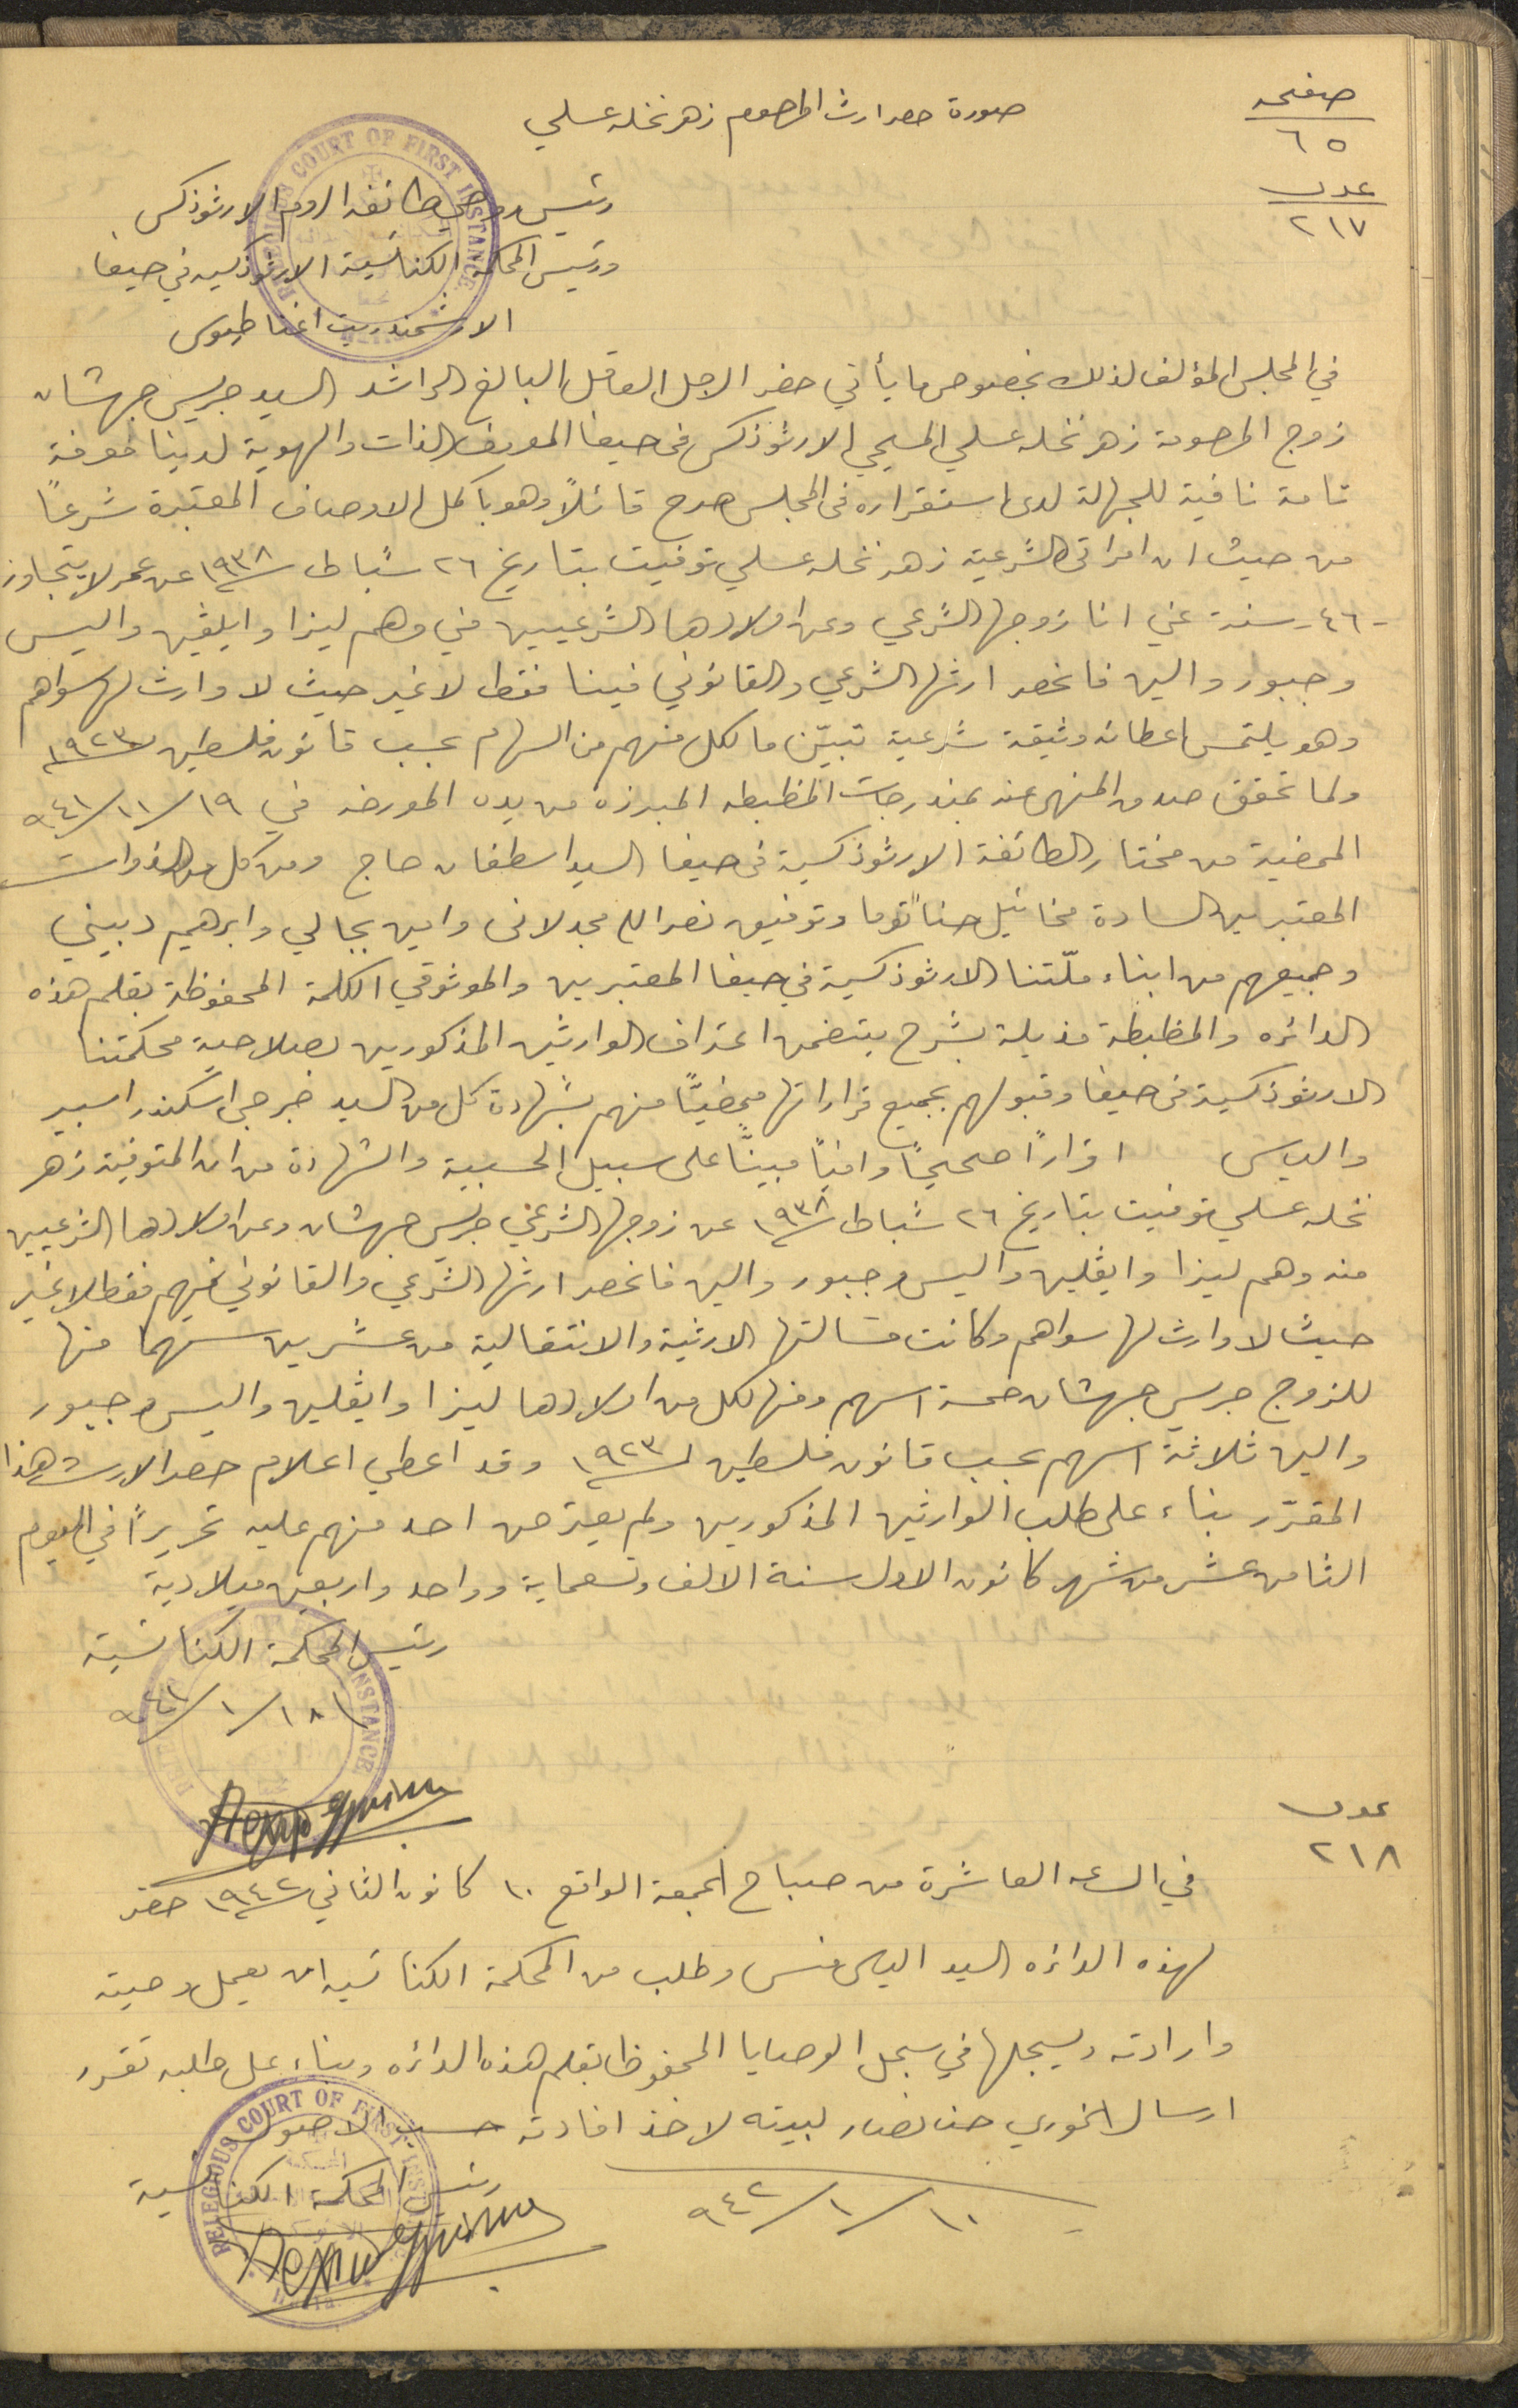 صفحه
٦٥
صورة حصر ارث المرحوم زهر نخله عسلي
عدد
٢١٧
رئيس روحي طائفة الروم الارثوذكس
ورئيس المحكمة الكنائسية الارثوذكسيه في حيفا
الارشمندريت اغناطيوس
RELEGIOUS COURT OF FIRST INSTANCE
في المجلس المؤلف لذلك بخصوص ما يأتي حضر الرجل العاقل البالغ الراشد السيد جريس جهشان
زوج المرحومة زهر نخله عسلي المسيحي الارثوذكسي في حيفا المعروف الذات والهوية لدينا معرفة
تامة نافية للجهالة لدى استقراره في المجلس صرح قائلاً وهو باكمل الاوصاف المعتبرة شرعاً
من حيث ان امراتي الشرعية زهر نخله عسلي توفيت بتاريخ ٢٦ شباط ١٩٣٨ عن عمر لا يتجاوز
-٤٦- سنة عني انا زوجها الشرعي وعن اولادها الشرعيين مني وهم ليزا وايلڤين واليس
وجبور والين فانحصر ارثها الشرعي والقانوني فينا فقط لا غير حيث لا وارث لها سواهم
وهو يلتمس اعطائه وثيقة شرعية تبيّن ما لكل منهم من السهام بحسب قانون فلسطين ١٩٢٣
ولما تحقق صدق المنهى عنه بمندرجات المظبطه المبرزه من يده المورخه في ١٩/١١/٩٤١
الممضية من مختار الطائفة الارثوذكسية في حيفا السيد اسطفان حاج ومن كل من الذوات
المعتبرين السادة مخائيل حنا توما وتوفيق نصرالله مجدلاني وامين بجالي وابرهيم دبيني
وجميعهم من ابناء ملّتنا الارثوذكسية في حيفا المعتبرين والموثوقي الكلمة المحفوظة بقلم هذه
الدائره والمظبطة مذيلة بشرح يتضمن اعتراف الوارثين المذكورين بصلاحية محكمتنا
الارثوذكسية في حيفا وقبولهم بجميع قراراتها ممضيًّا منهم بشهادة كل من السيد خرجي اسكندر اسبير
والياس اقراراً صحيحاً وافياً مبينًّا على سبيل الحسبية والشهادة من ان المتوفية زهر
نخله عسلي توفيت بتاريخ ٢٦ شباط ١٩٣٨ عن زوجها الشرعي جريس جهشان وعن اولادها الشرعيين
منه وهم ليزا وايڤلين واليس وجبور والين فانحصر ارثها الشرعي والقانوني فيهم فقط لا غير
حيث لا وارث لها سواهم وكانت مسالتها الارثية والانتقالية من عشرين سهما منها
للزوج جريس جهشان خمسة اسهم ومنها لكل من اولادها ليزا وايڤلين واليس وجبور
والين ثلاثة اسهم بحسب قانون فلسطين لـ ١٩٢٣ وقد اعطي اعلام حصر الارث هذا
المقرّر بناء على طلب الوارثين المذكورين ولم يعترض احد منهم عليه تحريراً في اليوم
الثامن عشر من شهر كانون الاول سنة الالف وتسعماية وواحد واربعين ميلادية
رئيس المحكمة الكنائسية
١٨/١/٩٤١
عدد
٢١٨
في الساعه العاشرة من صباح الجمعة الواقع ١٠ كانون الثاني ١٩٤٢ حضر
لهذه الدائره السيد الياس منسى وطلب من المحكمة الكنائسيه ان يعمل وصيته
وارادته ويسجلها في سجل الوصايا المحفوظ بقلم هذه الدائره وبناء على طلبه تقرر
ارسال الخوري حنا نصار لبيته لاخذ افادته حسب الاصول
١٠/١/٩٤٢
رئيس المحكمة الكنائسية
RELEGIOUS COURT OF FIRST INSTANCE